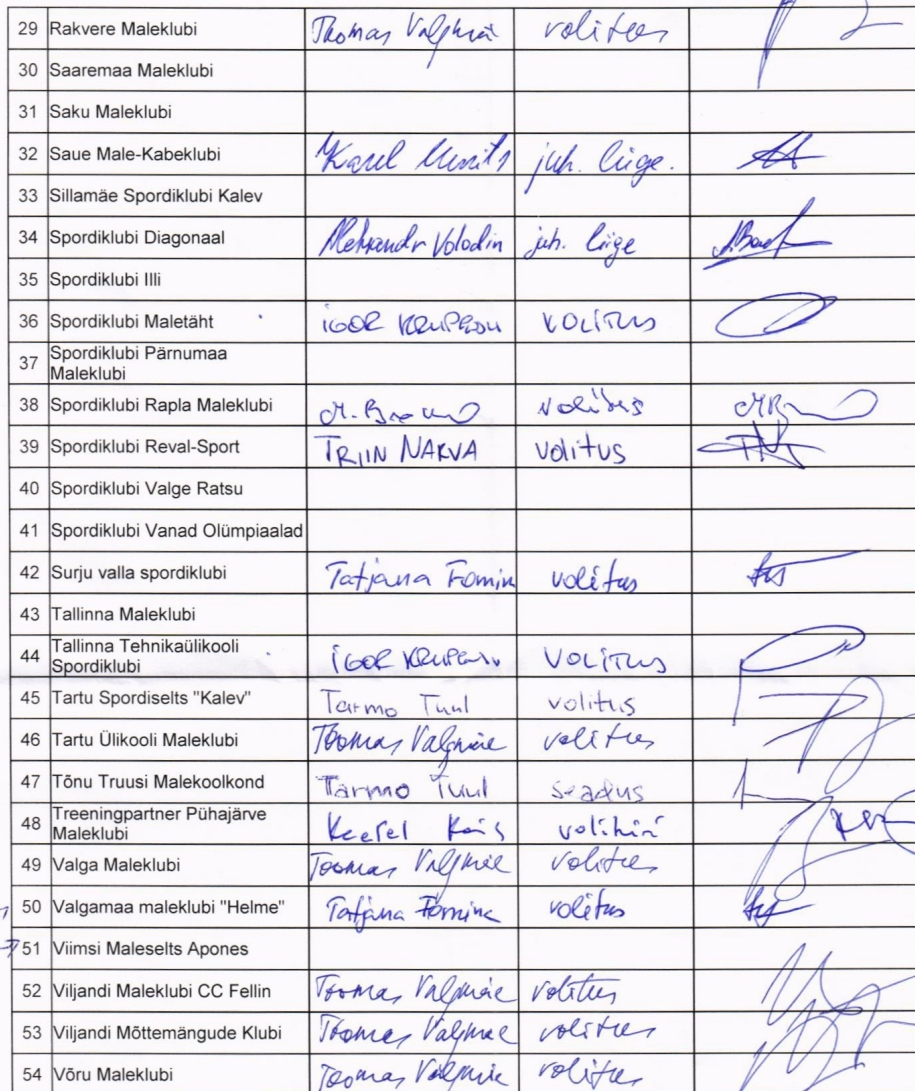 29 Rakvere Maleklubi Toomas Valgmäe volitus
30 Saaremaa Maleklubi
31 Saku Maleklubi
32 Saue Male-Kabeklubi Karel juh. liige.
33 Sillamäe Spordiklubi Kalev
34 Spordiklubi Diagonaal Aleksandr Volodin juh. liige
35 Spordiklubi Illi
36 Spordiklubi Maletäht IGOR volitus
37 Spordiklubi Pärnumaa
Maleklubi
38 Spordiklubi Rapla Maleklubi volitus
39 Spordiklubi Reval-Sport TRIIN NARVA volitus
40 Spordiklubi Valge Ratsu
41 Spordiklubi Vanad Olümpiaalad
42 Surju valla spordiklubi Tatjana Fomina volitus
43 Tallinna Maleklubi
44 Tallinna Tehnikaülikooli
Spordiklubi IGOR VOLITUS
45 Tartu Spordiselts "Kalev" Tarmo Tuul volitus
46 Tartu Ülikooli Maleklubi Toomas Valgmäe volitus
47 Tõnu Truusi Malekoolkond Tarmo Tuul seadus
48 Treeningpartner Pühajärve
Maleklubi
49 Valga Maleklubi Toomas Valgmäe volitus
50 Valgamaa maleklubi "Helme" Tatjana Fomina volitus
51 Viimsi Maleselts Apones
52 Viljandi Maleklubi CC Fellin Toomas Valgmäe volitus
53 Viljandi Mõttemängude Klubi Toomas Valgmäe volitus
54 Võru Maleklubi Toomas Valgmäe volitus